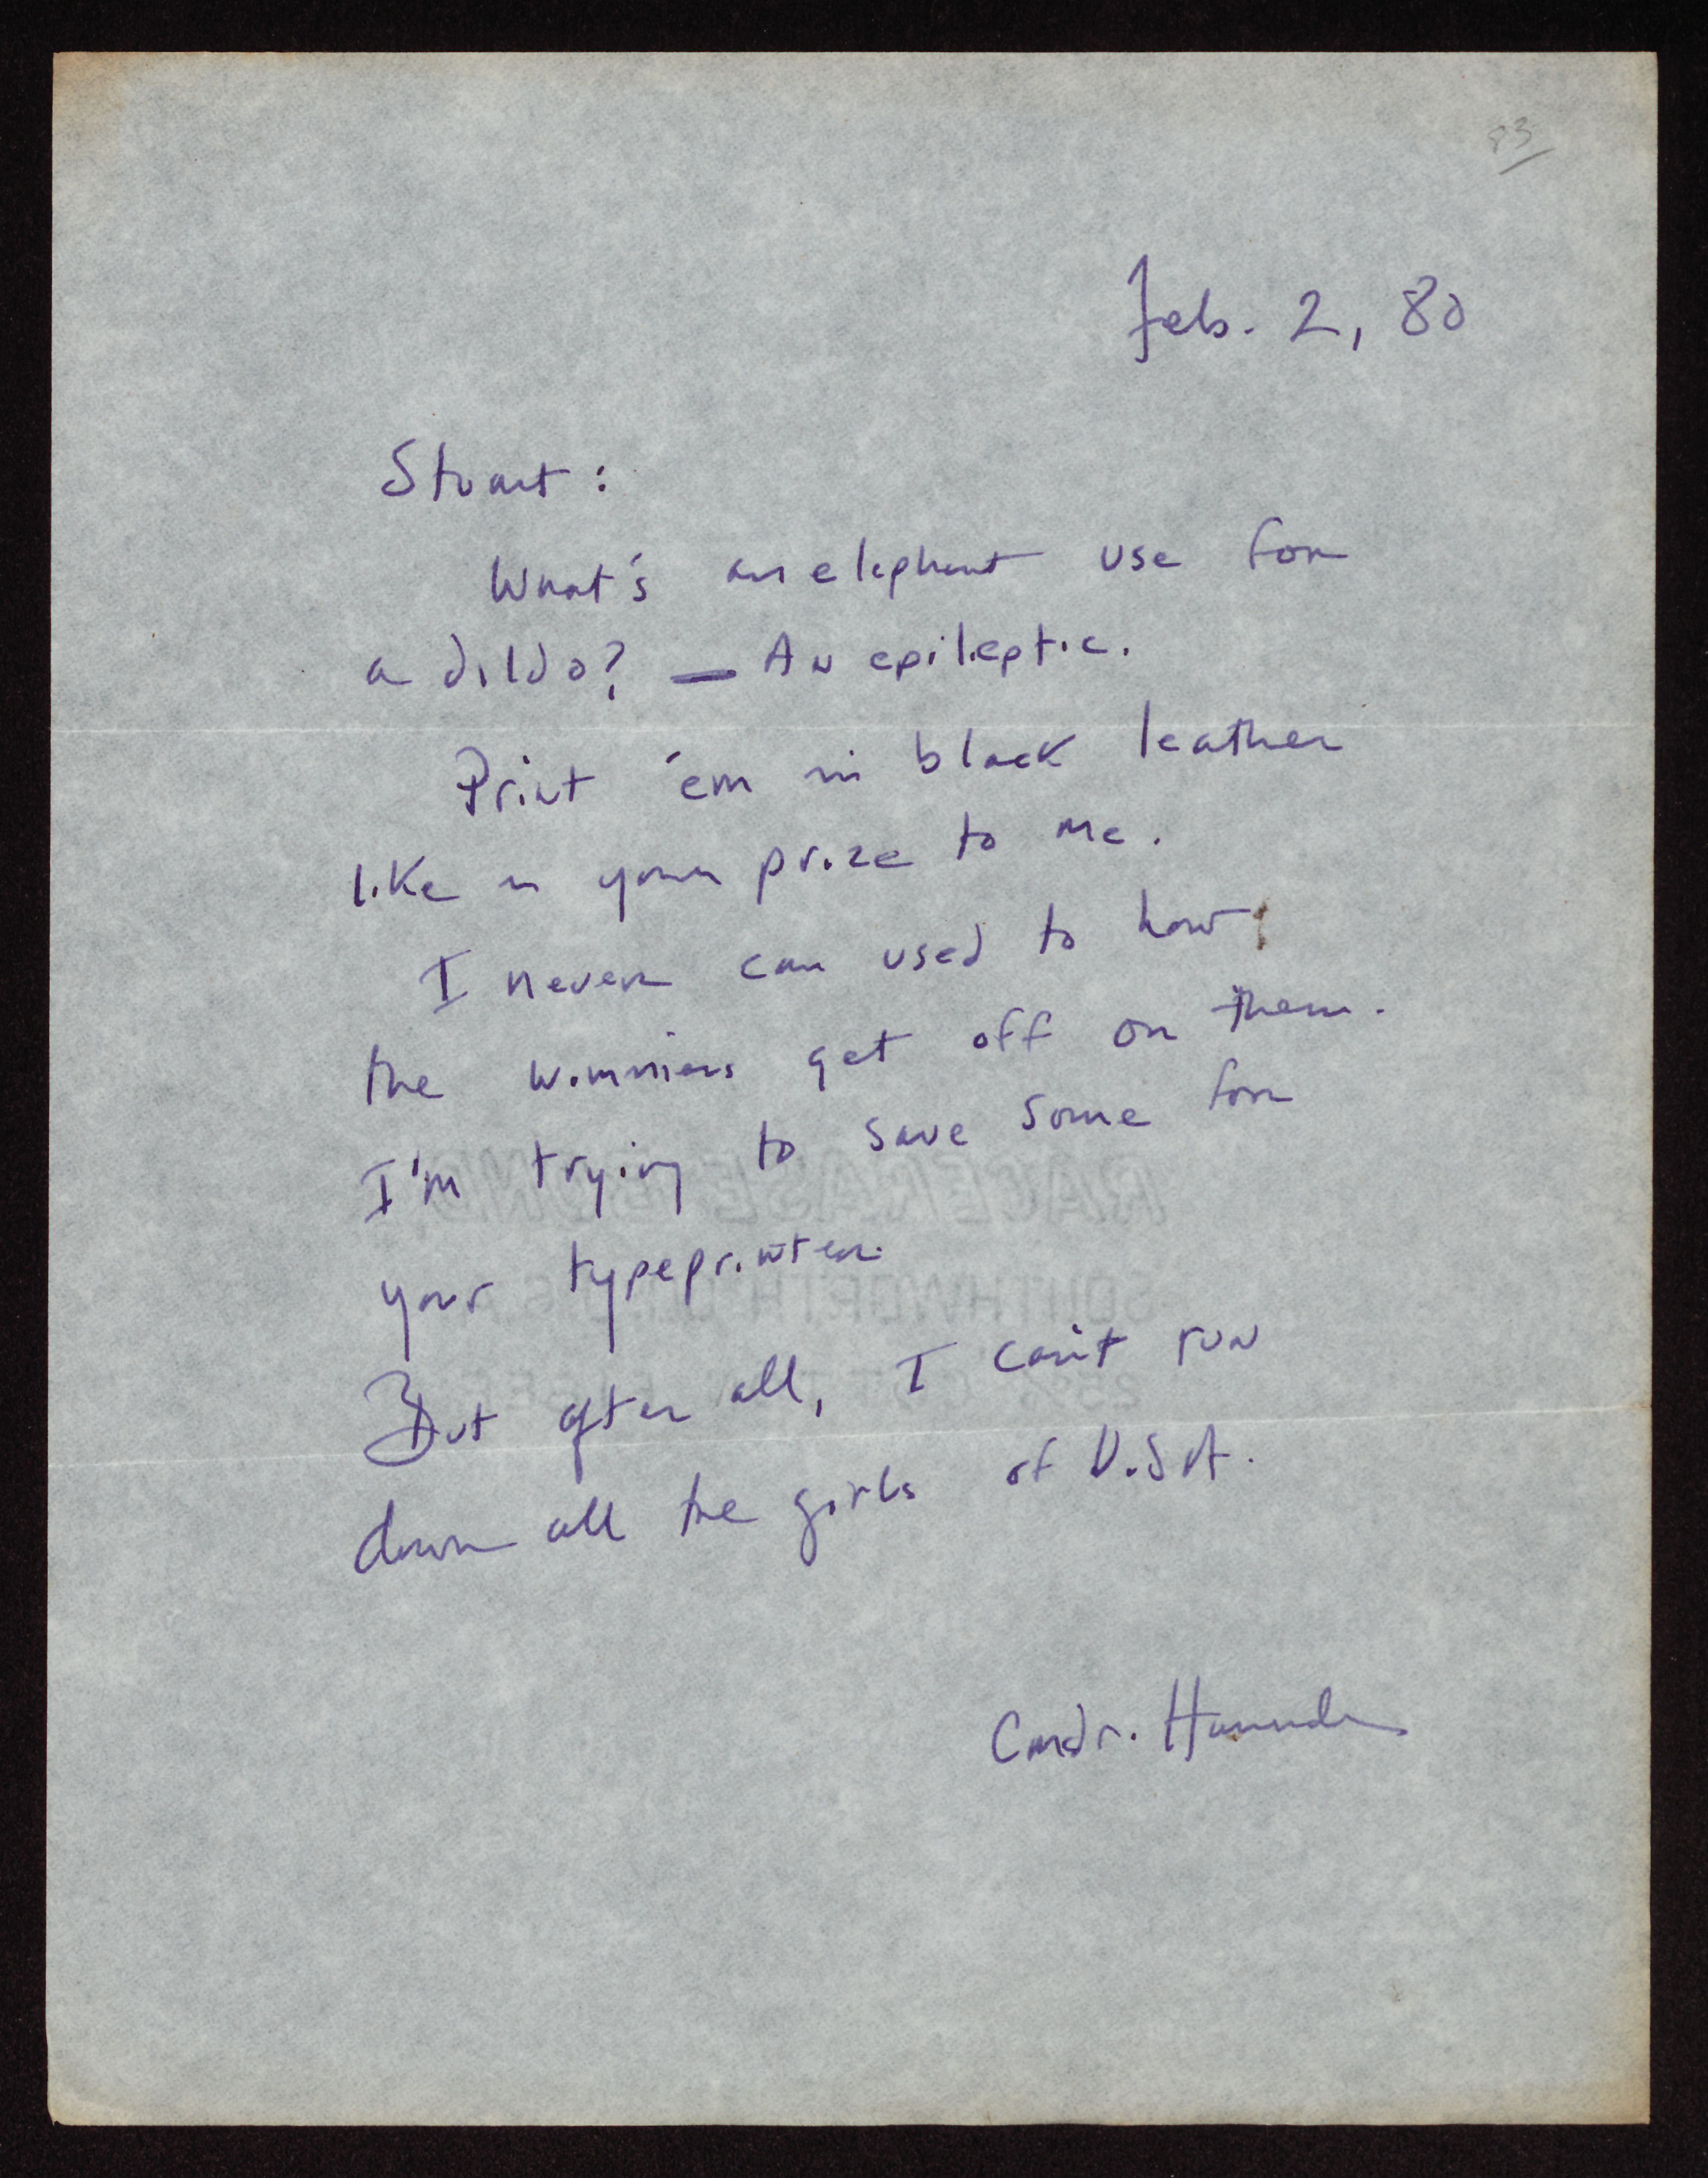 83
Feb. 2, 80
Stuart :
What's an elephant use for
a dildo? — An epileptic.
Print 'em in black leather
like in your prize to me.
I never can used to how
the wimmens get off on them.
I'm trying to save some for
your typeprinter.
But after all, I can't run
down all the girls of U.S.A.
Cmdr.